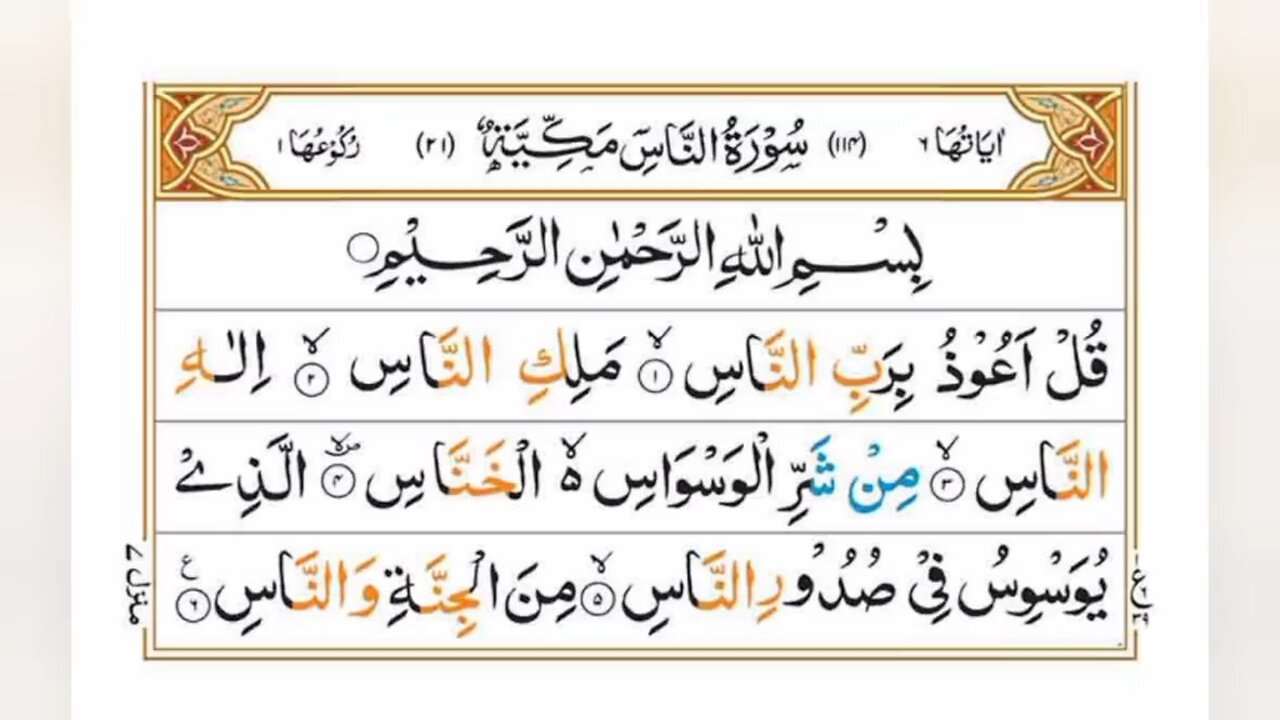 اٰيَاتُهَا ٦ (١١٤) سُوْرَةُ النَّاسِ مَكِّيَّةٌ (٢١) رُكُوْعُهَا ١
بِسْمِ اللهِ الرَّحْمٰنِ الرَّحِيْمِ
قُلْ اَعُوْذُ بِرَبِّ النَّاسِ ۙ١ مَلِكِ النَّاسِ ۙ٢ اِلٰهِ
النَّاسِ ۙ٣ مِنْ شَرِّ الْوَسْوَاسِ ۙ۬ الْخَنَّاسِ ۪ۙ٤ الَّذِيْ
يُوَسْوِسُ فِيْ صُدُوْرِ النَّاسِ ۙ٥ مِنَ الْجِنَّةِ وَالنَّاسِ ٦ ع
منزل ٧
ع
٣٩